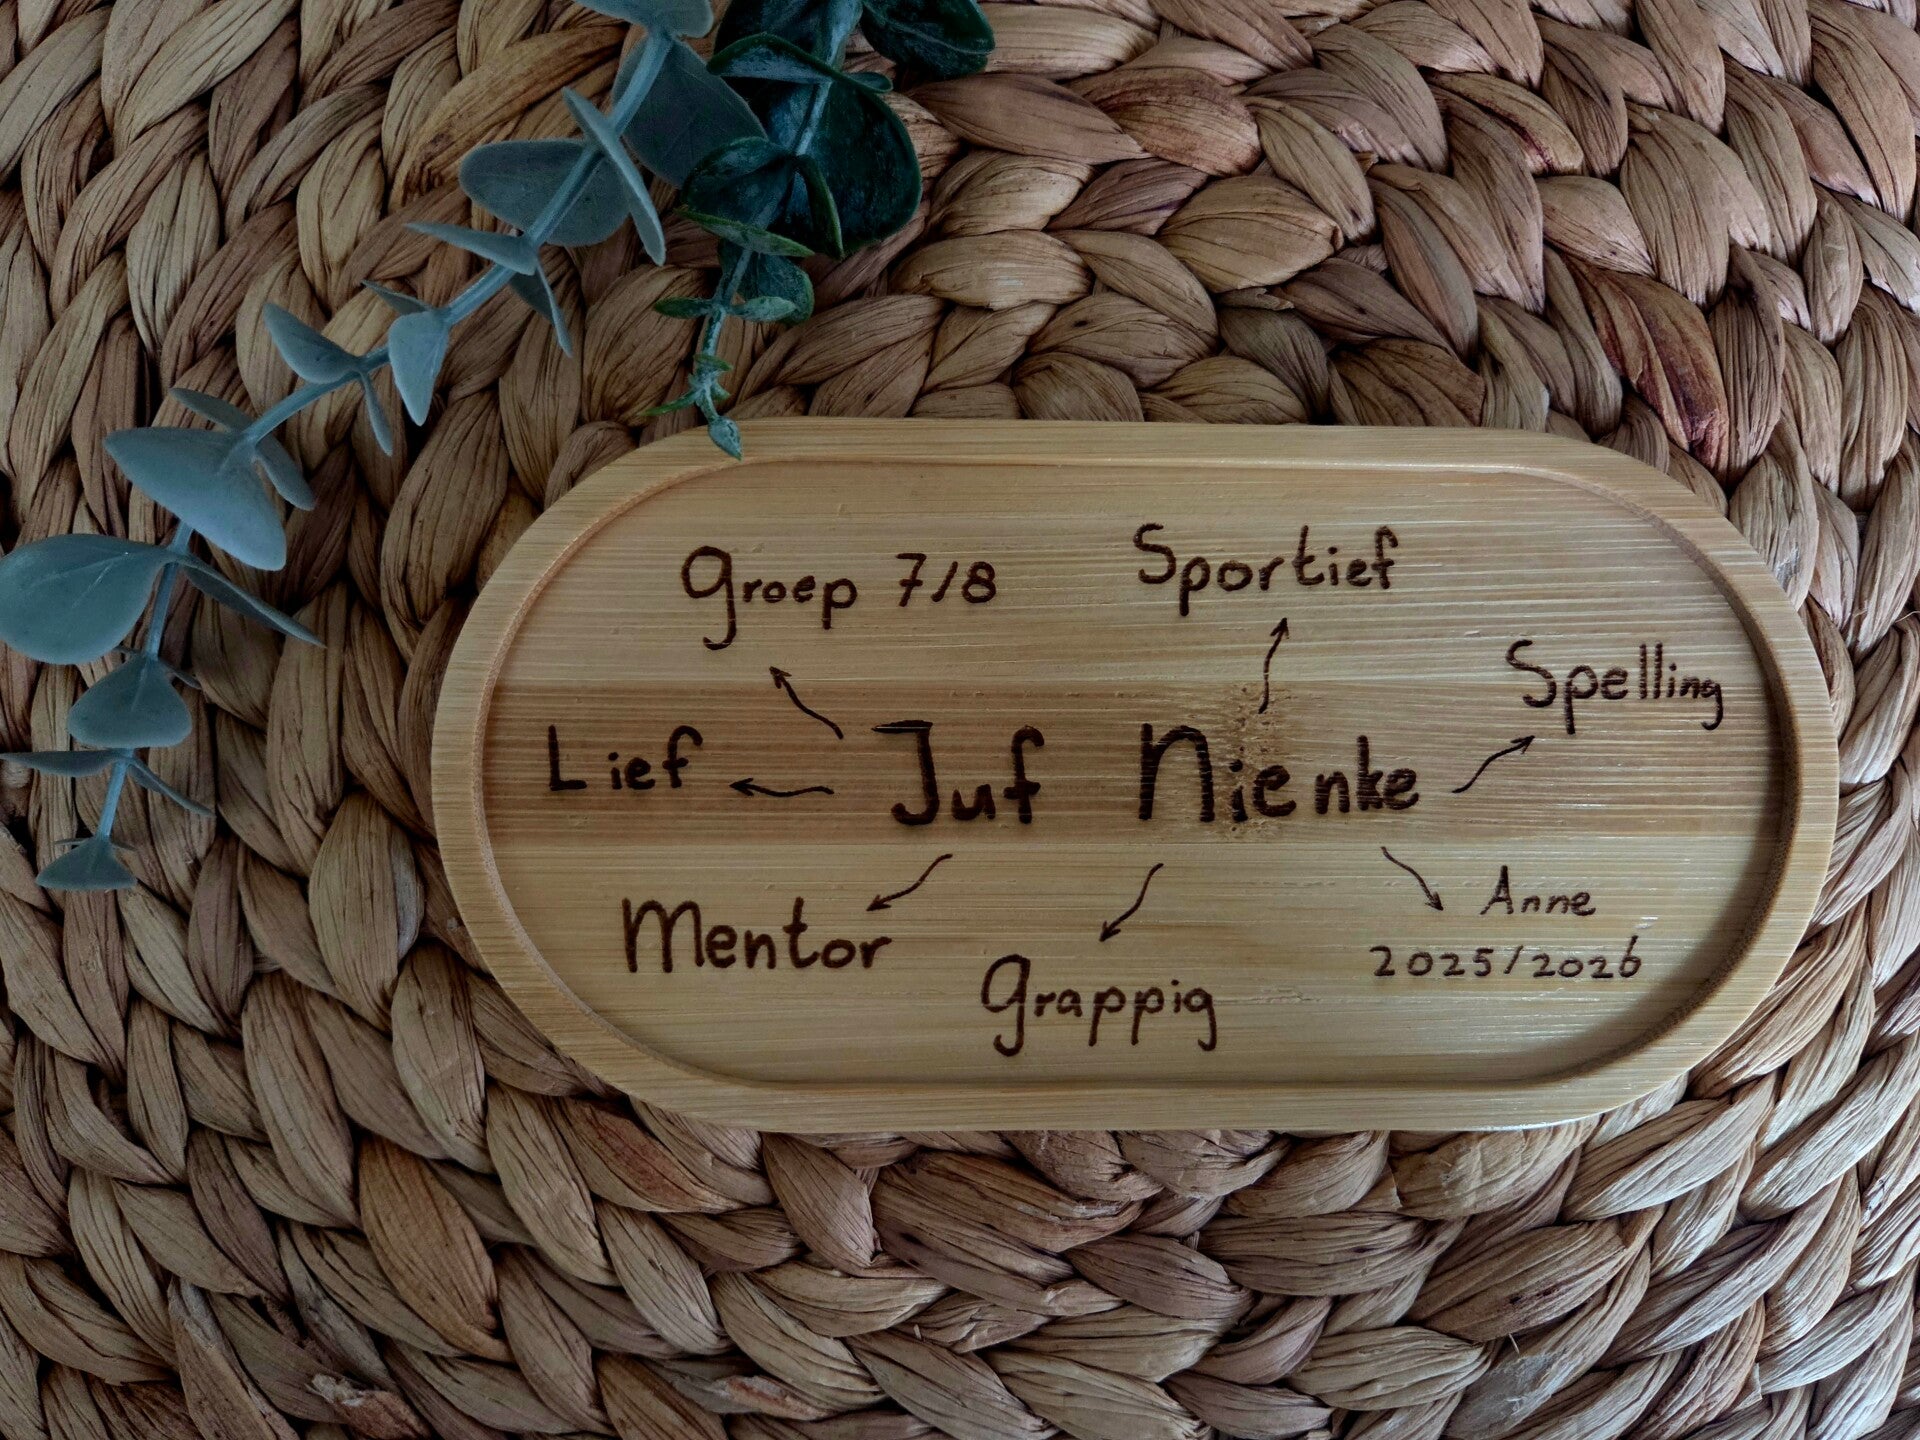 Groep 7/8
Sportief
Spelling
Lief
Juf Nienke
Mentor
Grappig
Anne
2025/2026